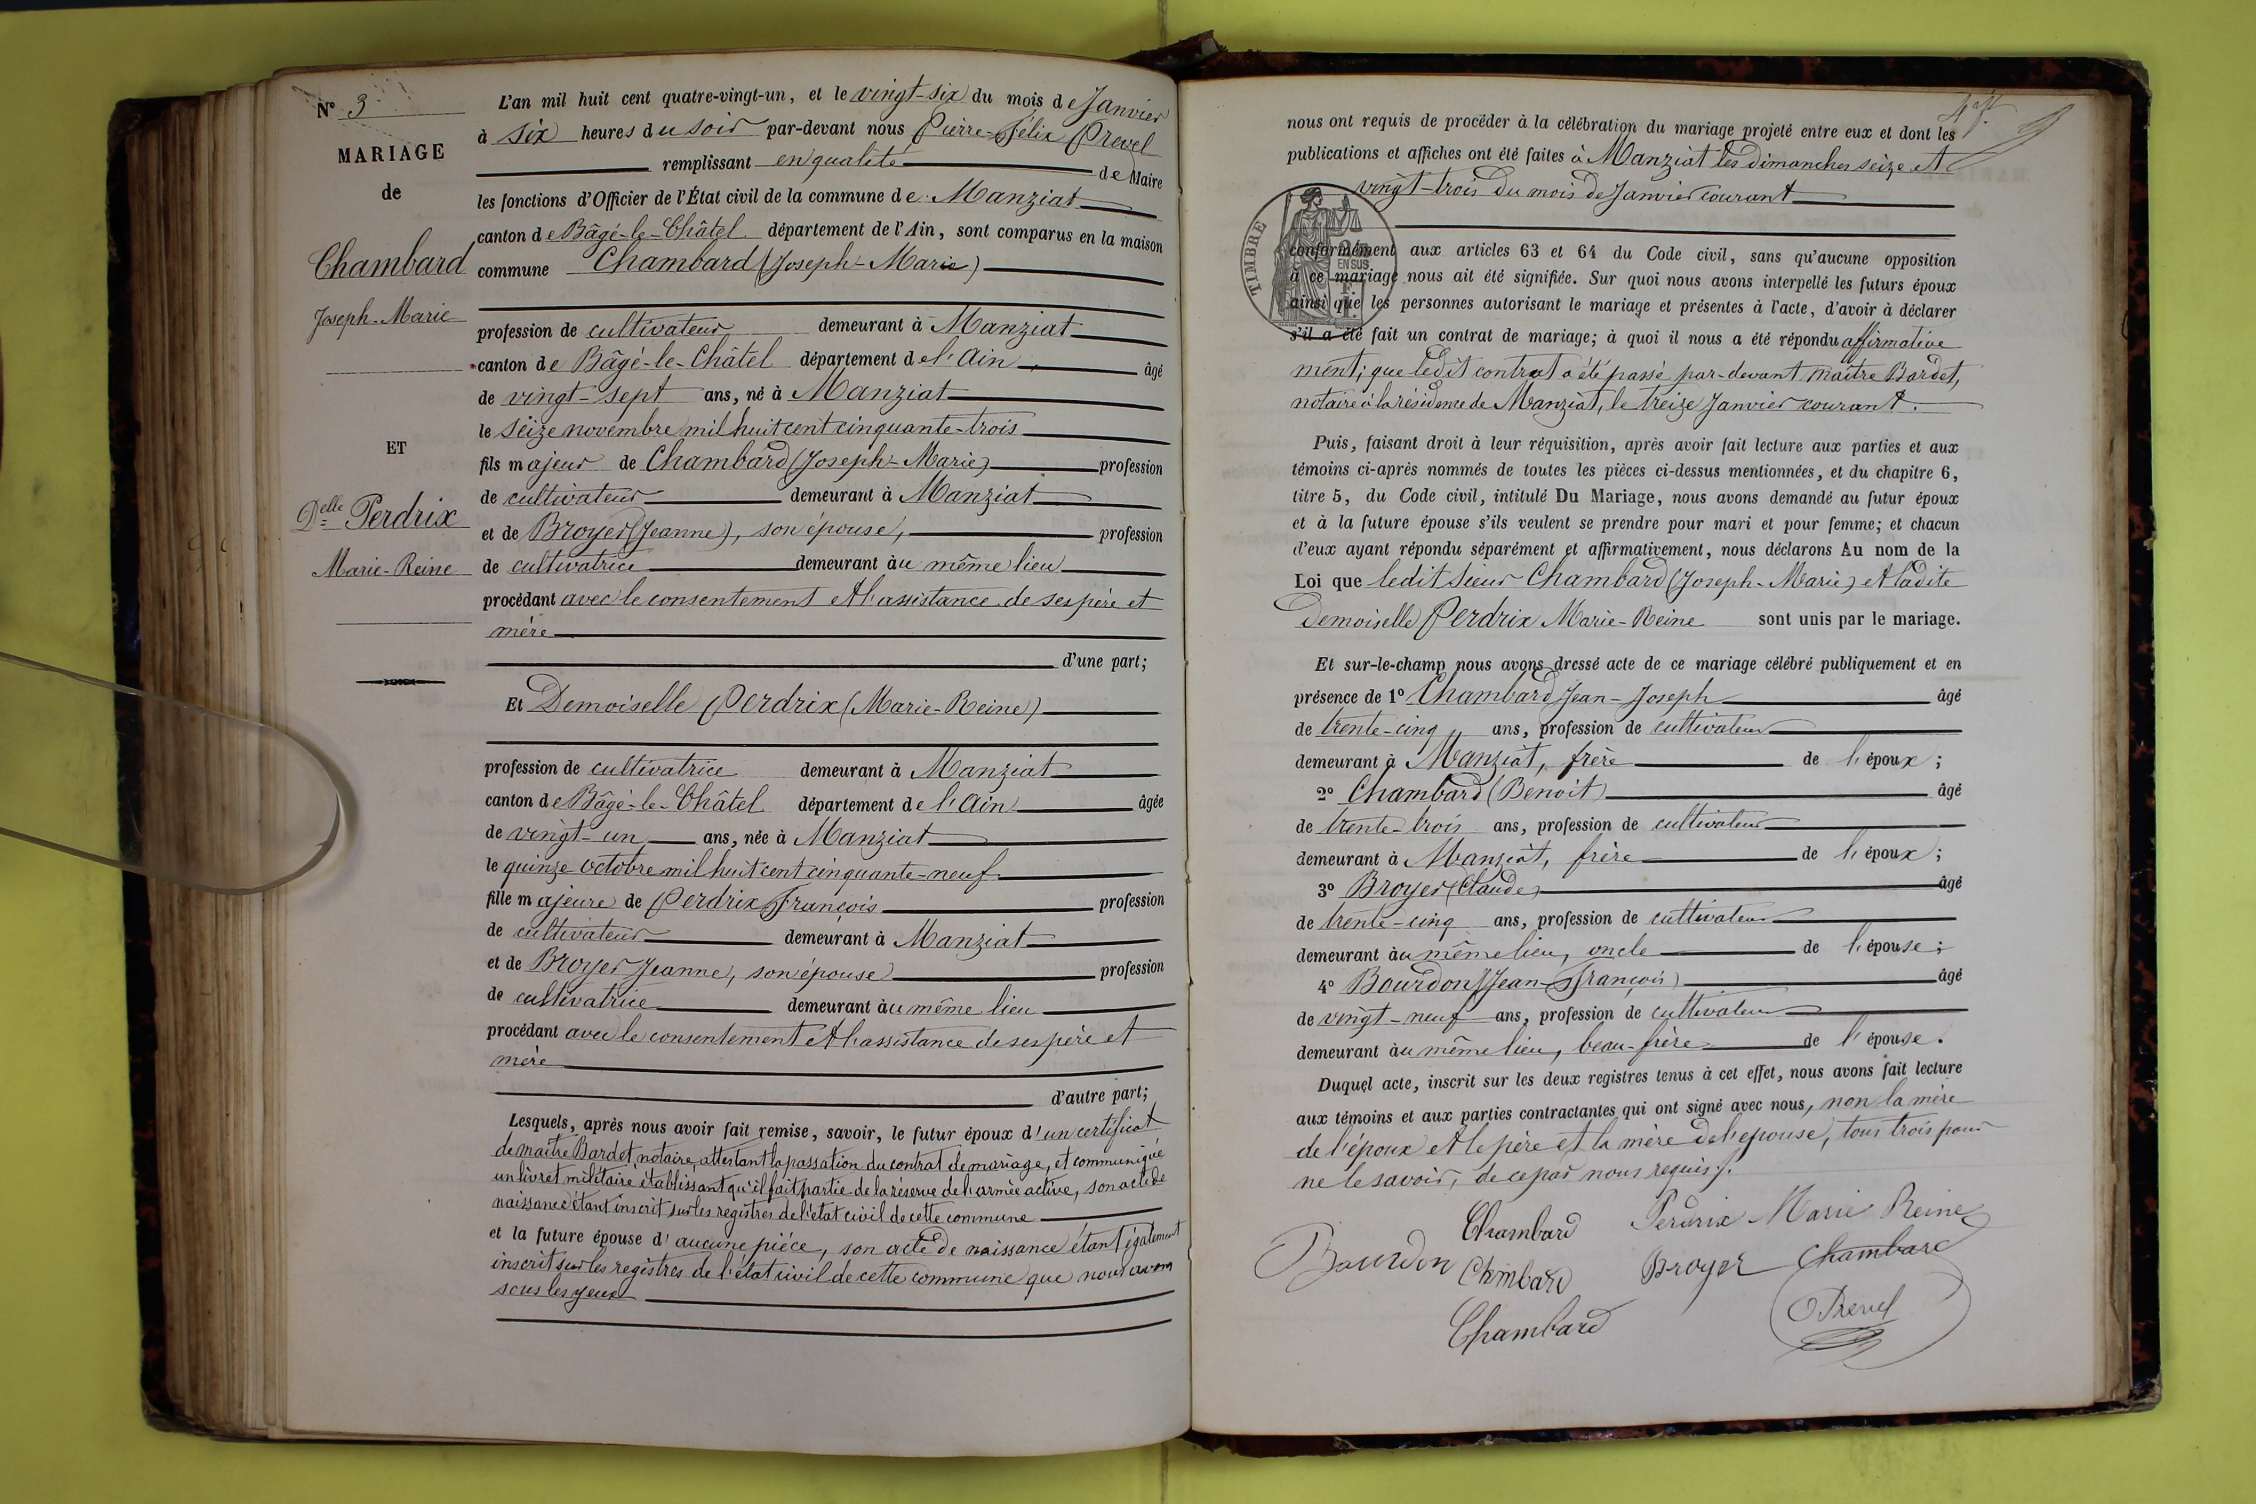 N° 3
MARIAGE
de
Chambard
Joseph-Marie
ET
Delle Perdrix
Marie-Reine
L'an mil huit cent quatre-vingt-un, et le vingt-six du mois de Janvier
à six heures du soir par-devant nous Pierre-Félix Prevel
remplissant en qualité de Maire
les fonctions d'Officier de l'État civil de la commune de Manziat
canton de Bâgé-le-Châtel département de l'Ain, sont comparus en la maison
commune Chambard (Joseph-Marie)
profession de cultivateur demeurant à Manziat
canton de Bâgé-le-Châtel département de l'Ain, âgé
de vingt-sept ans, né à Manziat
le seize novembre mil huit cent cinquante-trois
fils majeur de Chambard (Joseph-Marie) profession
de cultivateur demeurant à Manziat
et de Broyer (Jeanne), son épouse, profession
de cultivatrice demeurant au même lieu
procédant avec le consentement et l'assistance de ses père et
mère
d'une part;
Et Demoiselle Perdrix (Marie-Reine)
profession de cultivatrice demeurant à Manziat
canton de Bâgé-le-Châtel département de l'Ain âgée
de vingt-un ans, née à Manziat
le quinze octobre mil huit cent cinquante-neuf
fille majeure de Perdrix François profession
de cultivateur demeurant à Manziat
et de Broyer Jeanne, son épouse profession
de cultivatrice demeurant au même lieu
procédant avec le consentement et l'assistance de ses père et
mère
d'autre part;
Lesquels, après nous avoir fait remise, savoir, le futur époux d'un certificat
de maître Bardet, notaire, attestant la passation du contrat de mariage, et communiqué
un livret militaire établissant qu'il fait partie de la réserve de l'armée active, son acte de
naissance étant inscrit sur les registres de l'état civil de cette commune
et la future épouse d'aucune pièce, son acte de naissance étant également
inscrit sur les registres de l'état civil de cette commune que nous avons
sous les yeux
nous ont requis de procéder à la célébration du mariage projeté entre eux et dont les
publications et affiches ont été faites à Manziat les dimanches seize et
vingt-trois du mois de Janvier courant
TIMBRE
EN SUS
conformément aux articles 63 et 64 du Code civil, sans qu'aucune opposition
à ce mariage nous ait été signifiée. Sur quoi nous avons interpellé les futurs époux
ainsi que les personnes autorisant le mariage et présentes à l'acte, d'avoir à déclarer
s'il a été fait un contrat de mariage; à quoi il nous a été répondu affirmative
ment; que ledit contrat a été passé par-devant maître Bardet,
notaire à la résidence de Manziat, le treize Janvier courant.
Puis, faisant droit à leur réquisition, après avoir fait lecture aux parties et aux
témoins ci-après nommés de toutes les pièces ci-dessus mentionnées, et du chapitre 6,
titre 5, du Code civil, intitulé Du Mariage, nous avons demandé au futur époux
et à la future épouse s'ils veulent se prendre pour mari et pour femme; et chacun
d'eux ayant répondu séparément et affirmativement, nous déclarons Au nom de la
Loi que ledit sieur Chambard (Joseph-Marie) et ladite
Demoiselle Perdrix Marie-Reine sont unis par le mariage.
Et sur-le-champ nous avons dressé acte de ce mariage célébré publiquement et en
présence de 1° Chambard Jean-Joseph âgé
de trente-cinq ans, profession de cultivateur
demeurant à Manziat, frère de l'époux;
2° Chambard (Benoit) âgé
de trente-trois ans, profession de cultivateur
demeurant à Manziat, frère de l'époux;
3° Broyer (Claude) âgé
de trente-cinq ans, profession de cultivateur
demeurant au même lieu, oncle de l'épouse;
4° Bourdon (Jean-François) âgé
de vingt-neuf ans, profession de cultivateur
demeurant au même lieu, beau-frère de l'épouse.
Duquel acte, inscrit sur les deux registres tenus à cet effet, nous avons fait lecture
aux témoins et aux parties contractantes qui ont signé avec nous, non la mère
de l'époux et le père et la mère de l'épouse, tous trois pour
ne le savoir, de ce par nous requis.
Chambard Perdrix Marie Reine
Bourdon Chmbard Broyer Chambard
Chambard Prevel